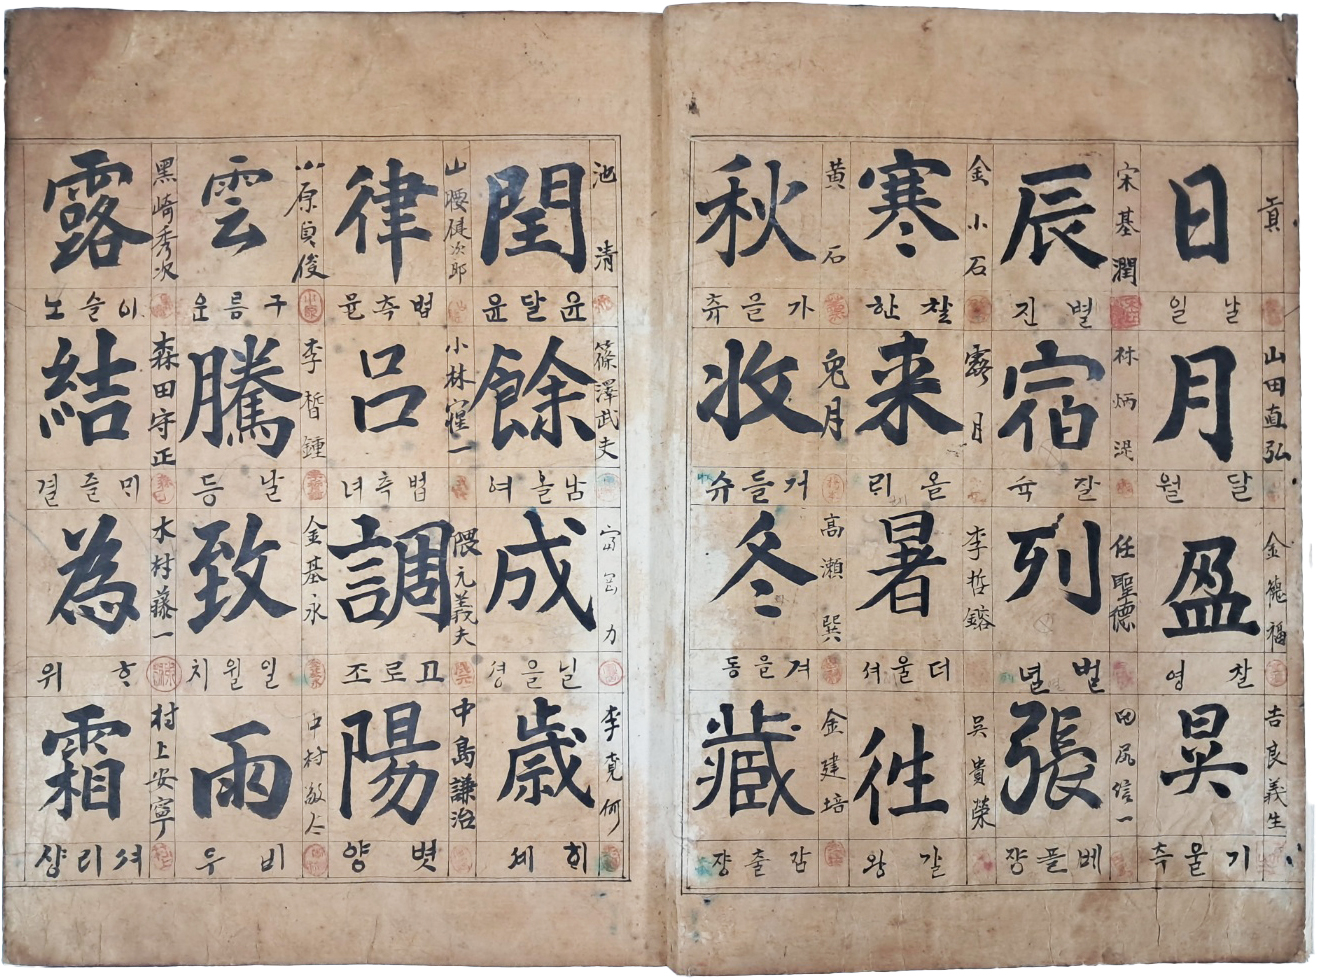 日
날일
山田直弘
月
달월
金德福
盈
찰영
吉良義生
晃
기울츅
宋基潤
辰
별진
林炳湜
宿
잘슉
任聖德
列
벌녈
田尻信一
張
베플쟝
金小石
寒
찰한
露月
来
올ᄅᆡ
李哲鎔
暑
더울셔
吳貴榮
徃
갈왕
黄石
秋
가을츄
兔月
收
거들슈
高瀬巽
冬
겨을동
金建培
藏
감출쟝
池清
閏
윤달윤
篠澤武夫
餘
남을여
富岡力
成
닐을셩
李克何
歳
ᄒᆡ셰
律
법측뉼
小林
呂
법측녀
隈元義夫
調
고로조
中島謙治
陽
볏양
小原貞俊
雲
구름운
李晳鍾
騰
날등
金基永
致
일월치
中村敏
雨
비우
黑崎秀次
露
이슬노
森田守正
結
ᄆᆡ즐결
木村藤一
為
ᄒᆞ위
村上安寧
霜
셔리샹